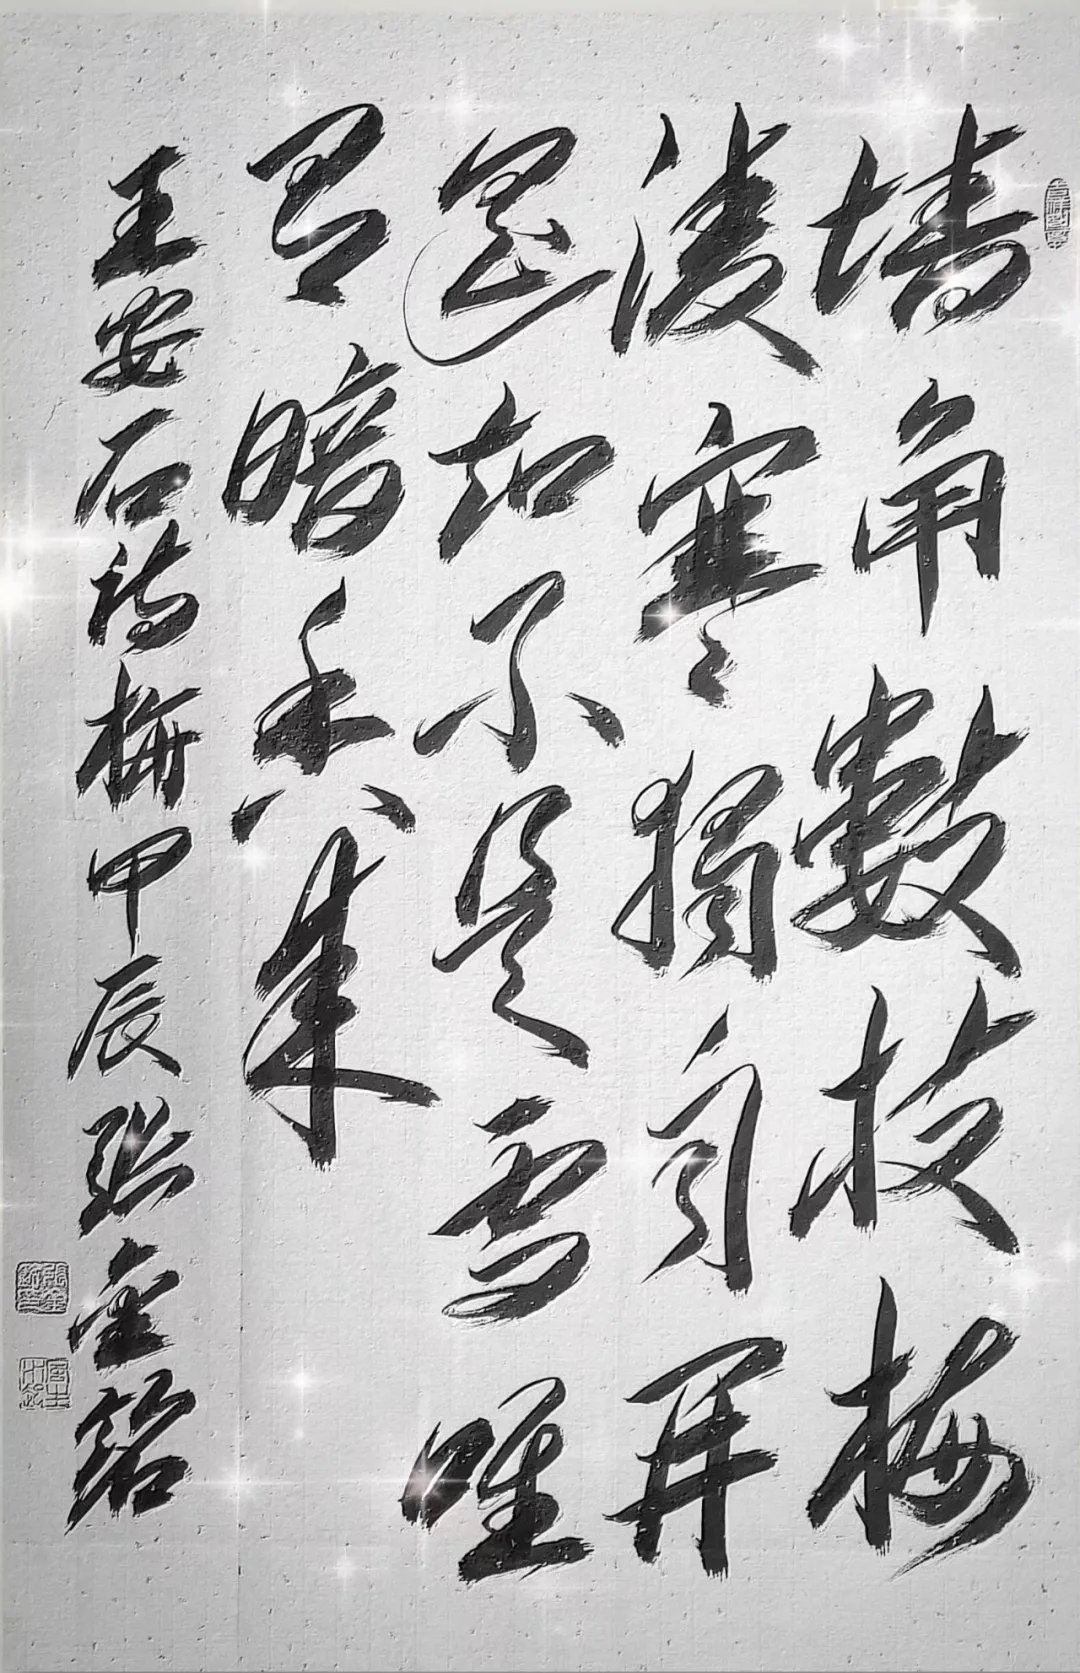 墙角數枝梅
凌寒獨自开
遥知不是雪唯
有暗香来
王安石诗梅甲辰张金